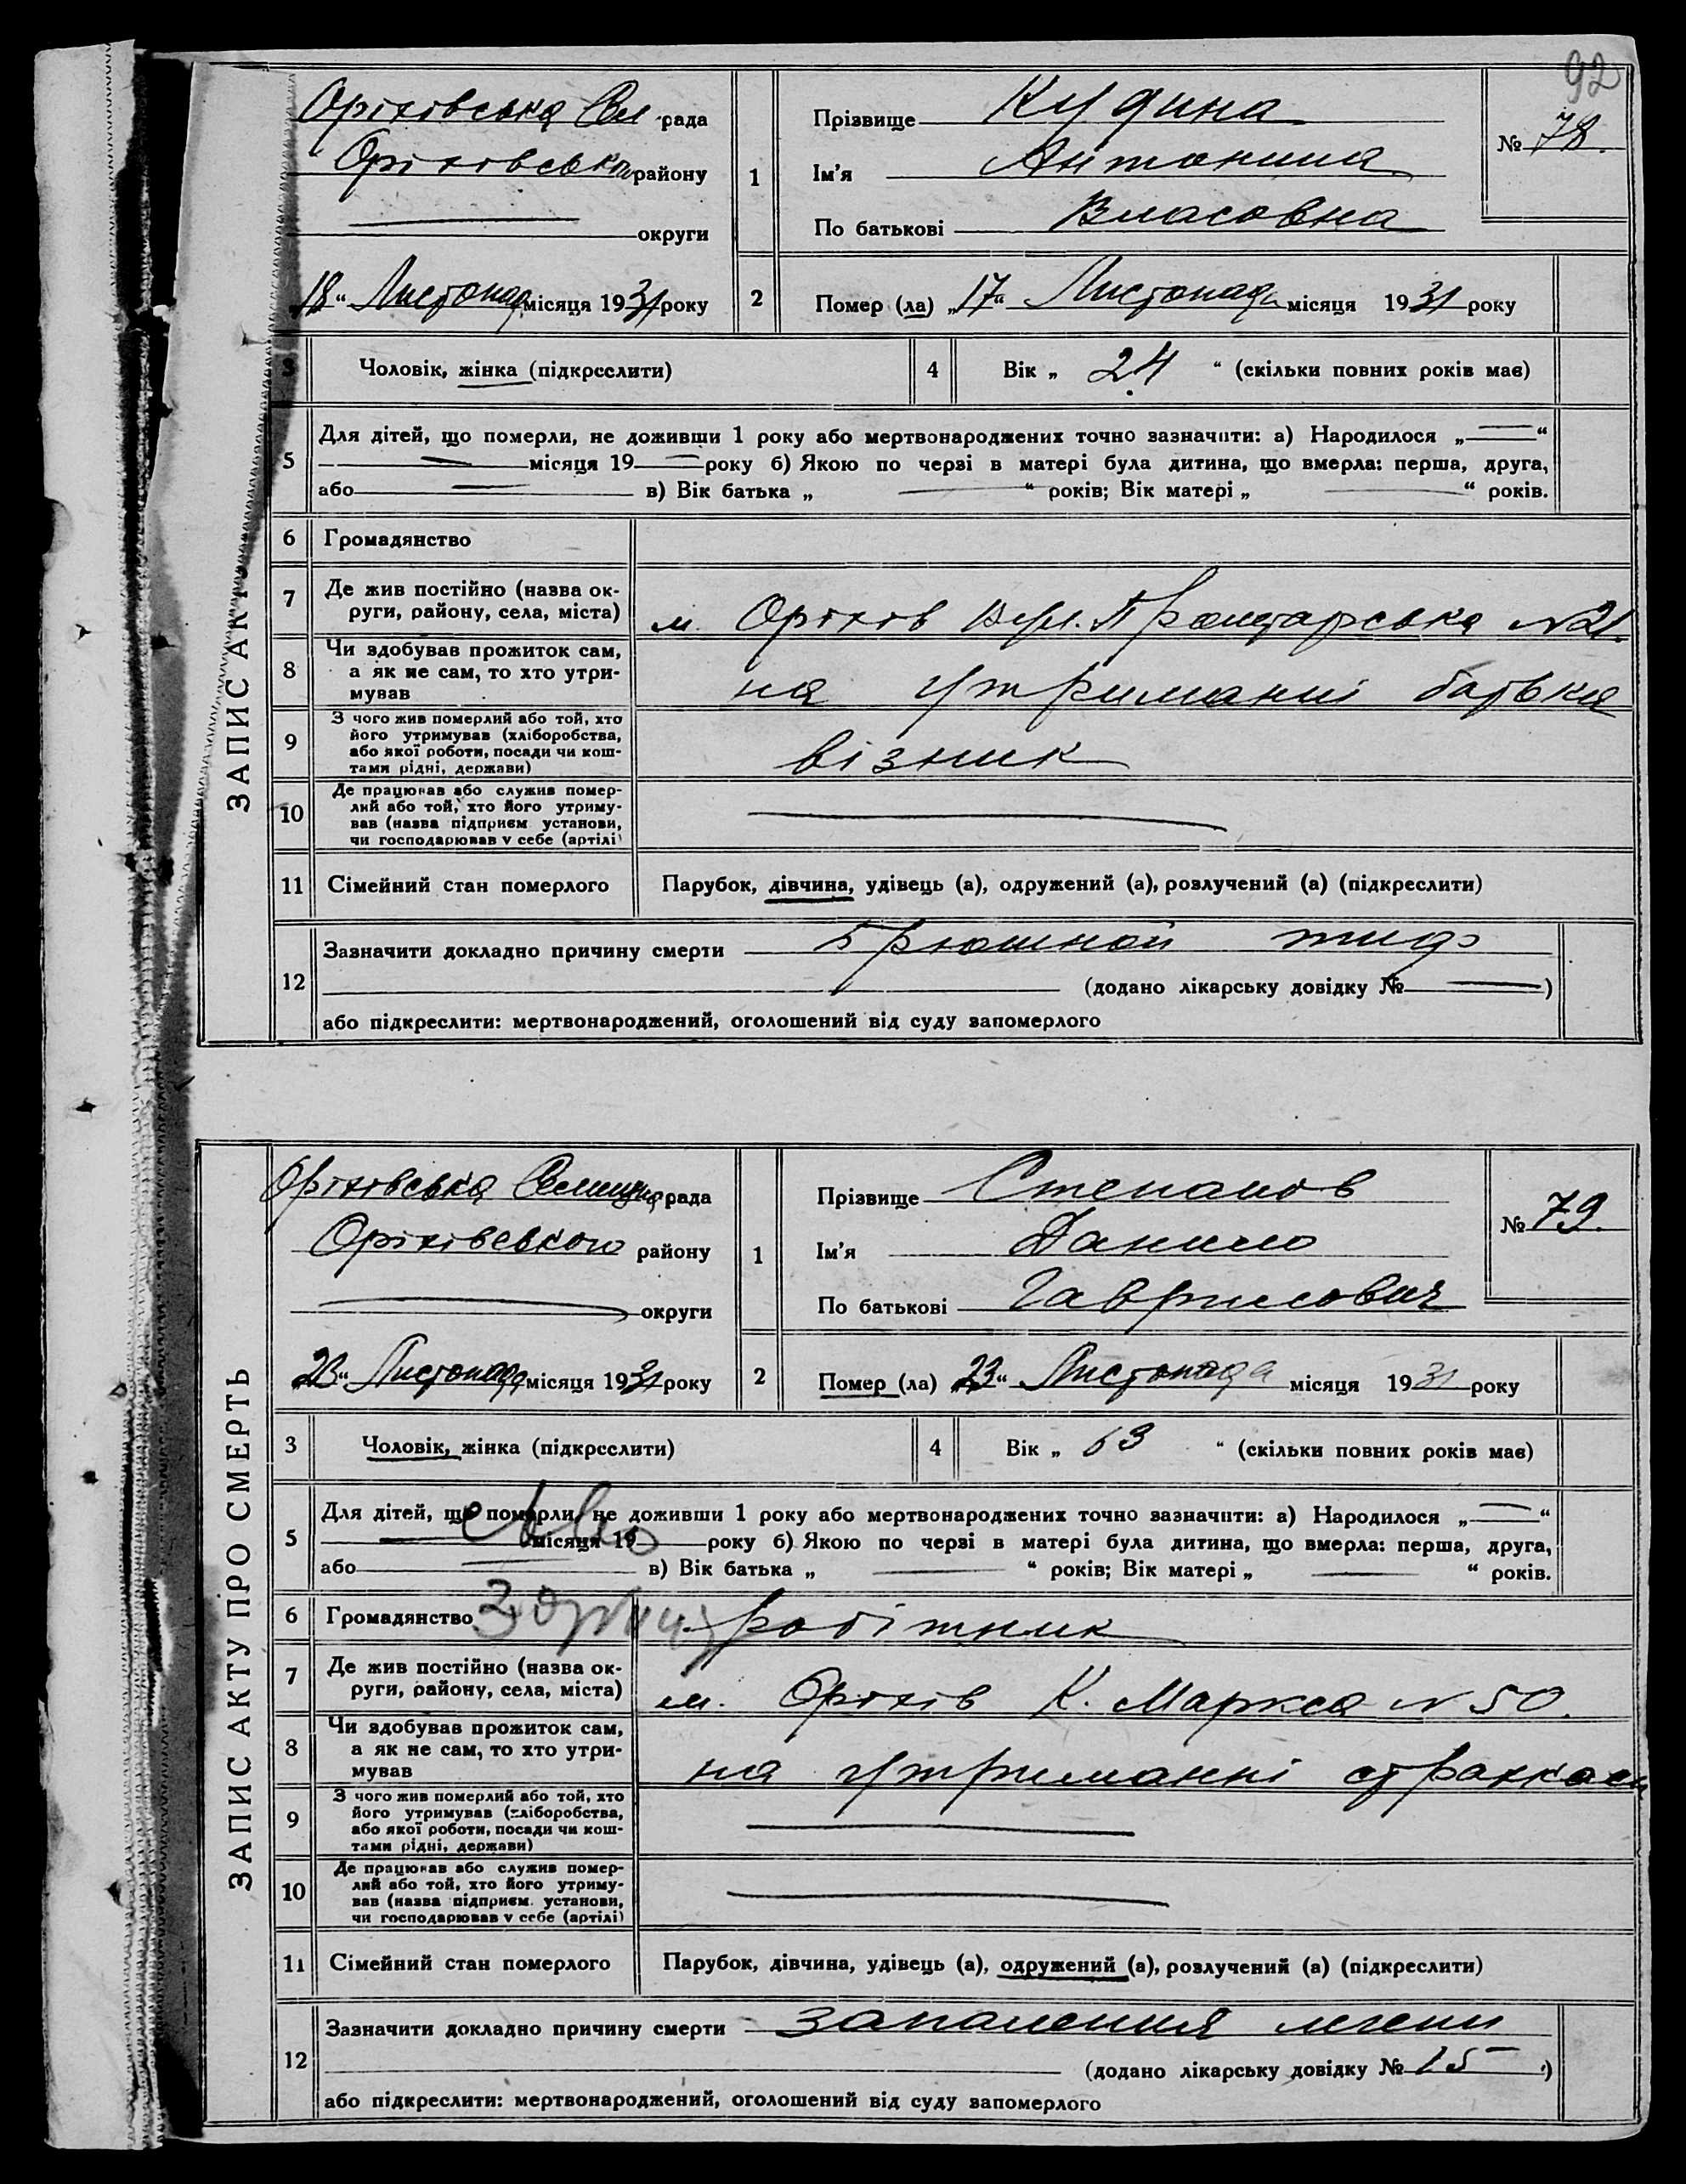 92
ЗАПИС АК
Оріхівська Сел рада
Оріхівськ району
округи
18 “ Листопад місяця 1931 року
1
Прізвище Кудина
Ім'я Антонина
По батькові Власовна
№ 78.
2
Помер (ла) „17“ Листопада місяця 1931 року
3
Чоловік, жінка (підкреслити)
4
Вік „ 24 “ (скільки повних років має)
5
Для дітей, що померли, не доживши 1 року або мертвонароджених точно зазначити: а) Народилося „—“
— місяця 19— року б) Якою по черзі в матері була дитина, що вмерла: перша, друга,
або — в) Вік батька „ — “ років; Вік матері „ — “ років.
6
Громадянство
7
Де жив постійно (назва ок-
руги, району, села, міста)
м. Оріхів Вул. Пролетарська №21.
8
Чи здобував прожиток сам,
а як не сам, то хто утри-
мував
на утриманні батька
9
З чого жив померлий або той, хто
його утримував (хліборобства,
або якої роботи, посади чи кош-
тами рідні, держави)
візник
10
Де працював або служив помер-
лий або той, хто його утриму-
вав (назва підприєм. установи,
чи господарював у себе (артілі)
11
Сімейний стан померлого
Парубок, дівчина, удівець (а), одружений (а), розлучений (а) (підкреслити)
12
Зазначити докладно причину смерти Брюшной тиф
(додано лікарську довідку № — )
або підкреслити: мертвонароджений, оголошений від суду запомерлого
ЗАПИС АКТУ ПРО СМЕРТЬ
Оріхівська Селищна рада
Оріхівського району
округи
23 “ Листопада місяця 1931 року
1
Прізвище Степанов
Ім'я Данило
По батькові Гаврилович
№ 79.
2
Помер (ла) 23 “ Листопада місяця 1931 року
3
Чоловік, жінка (підкреслити)
4
Вік „ 63 “ (скільки повних років має)
5
Для дітей, що померли, не доживши 1 року або мертвонароджених точно зазначити: а) Народилося „—“
— місяця 19— року б) Якою по черзі в матері була дитина, що вмерла: перша, друга,
або — в) Вік батька „ — “ років; Вік матері „ — “ років.
6
Громадянство
робітник
7
Де жив постійно (назва ок-
руги, району, села, міста)
м. Оріхів К. Маркса № 50.
8
Чи здобував прожиток сам,
а як не сам, то хто утри-
мував
на утриманні страхкаси
9
З чого жив померлий або той, хто
його утримував (хліборобства,
або якої роботи, посади чи кош-
тами рідні, держави)
10
Де працював або служив помер-
лий або той, хто його утриму-
вав (назва підприєм. установи,
чи господарював у себе (артілі)
11
Сімейний стан померлого
Парубок, дівчина, удівець (а), одружений (а), розлучений (а) (підкреслити)
12
Зазначити докладно причину смерти запалення легени
(додано лікарську довідку № 15 )
або підкреслити: мертвонароджений, оголошений від суду запомерлого